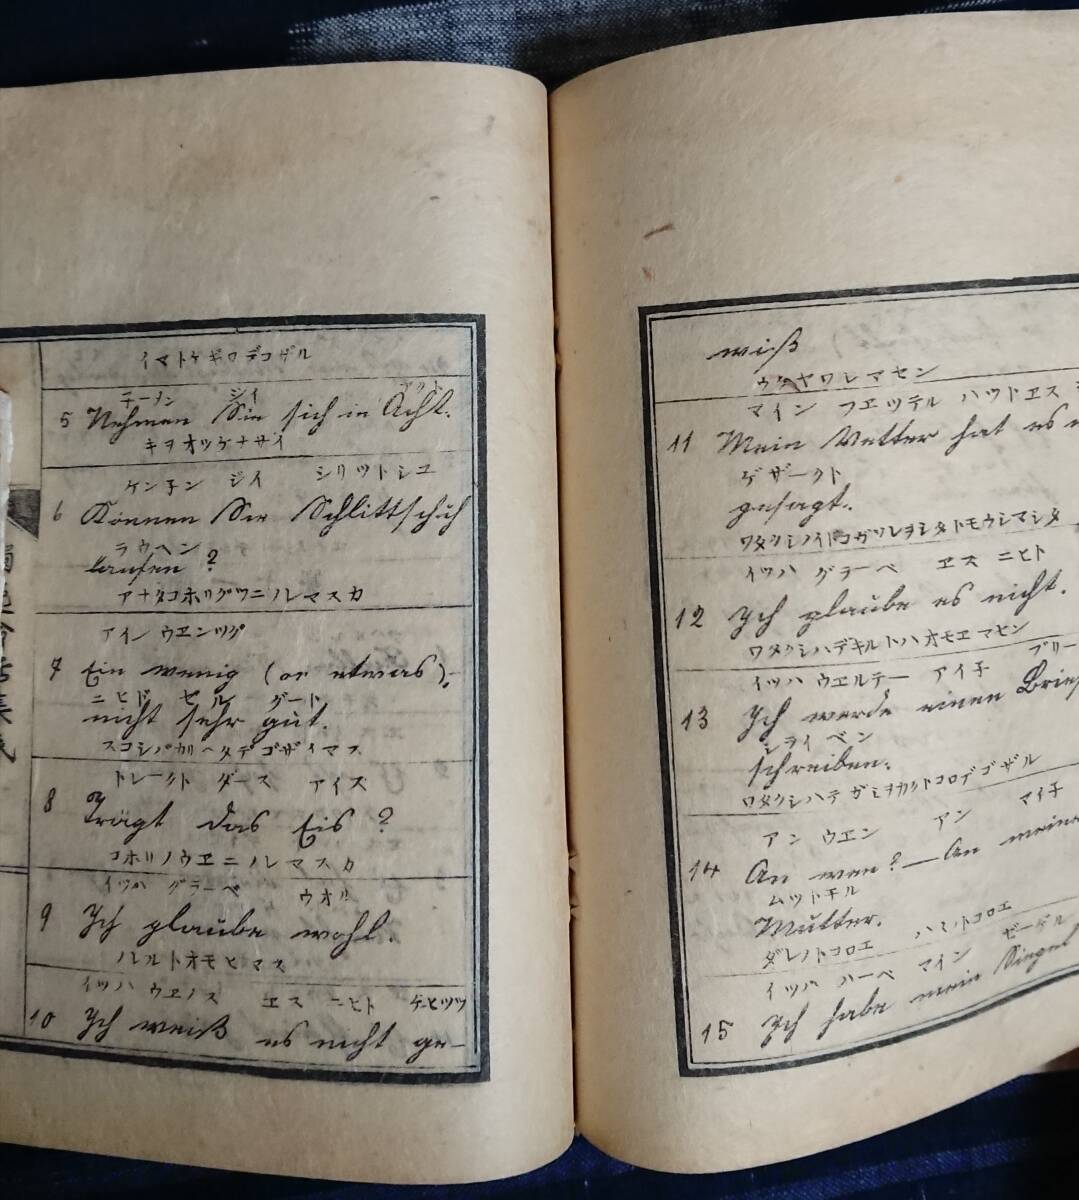 イマトケギロデコザル
子ーメン ジイ アクト
5 Nehmen Sie sich in Acht.
キヲオツケナサイ
ケン子ン ジイ シリツトシユ
6 Können Sie Schlittschuh
ラウヘン
laufen?
アナタコホリグツニノレマスカ
アイン ウヱンツグ
7 Ein wenig (or etwas).
ニヒド ゼル グート
nicht sehr gut.
スコシバカリヘタデゴザイマス
トレークト ダース アイズ
8 Trägt das Eis?
コホリノウヱニノレマスカ
イツハ グラーベ ウオル
9 Ich glaube wohl.
ノレルトオモヒマス
イツハ ウヱノス ヱス ニヒト ゲーヒツツ
10 Ich weiß es nicht ge-
wiß
ウケヤワレマセン
マイン フヱツテル ハツトヱス
11 Mein Vetter hat es
ゲザークト
gesagt.
ワタクシノイトコガソレヲシタトモウシマシタ
イツハ グラーベ ヱス ニヒト
12 Ich glaube es nicht.
ワタクシハデキルトハオモヱマセン
イツハ ウヱルテー アイ子 ブリー
13 Ich werde einen Brief
シライベン
schreiben.
ワタクシハテガミヲカクトコロデゴザル
アン ウエン アン マイ子
14 An wen? — An meine
ムツトテル
Mutter.
ダレノトコロエ ハヽノトコロエ
イツハ ハーベ マイン ゼーゲル
15 Ich habe mein Siegel